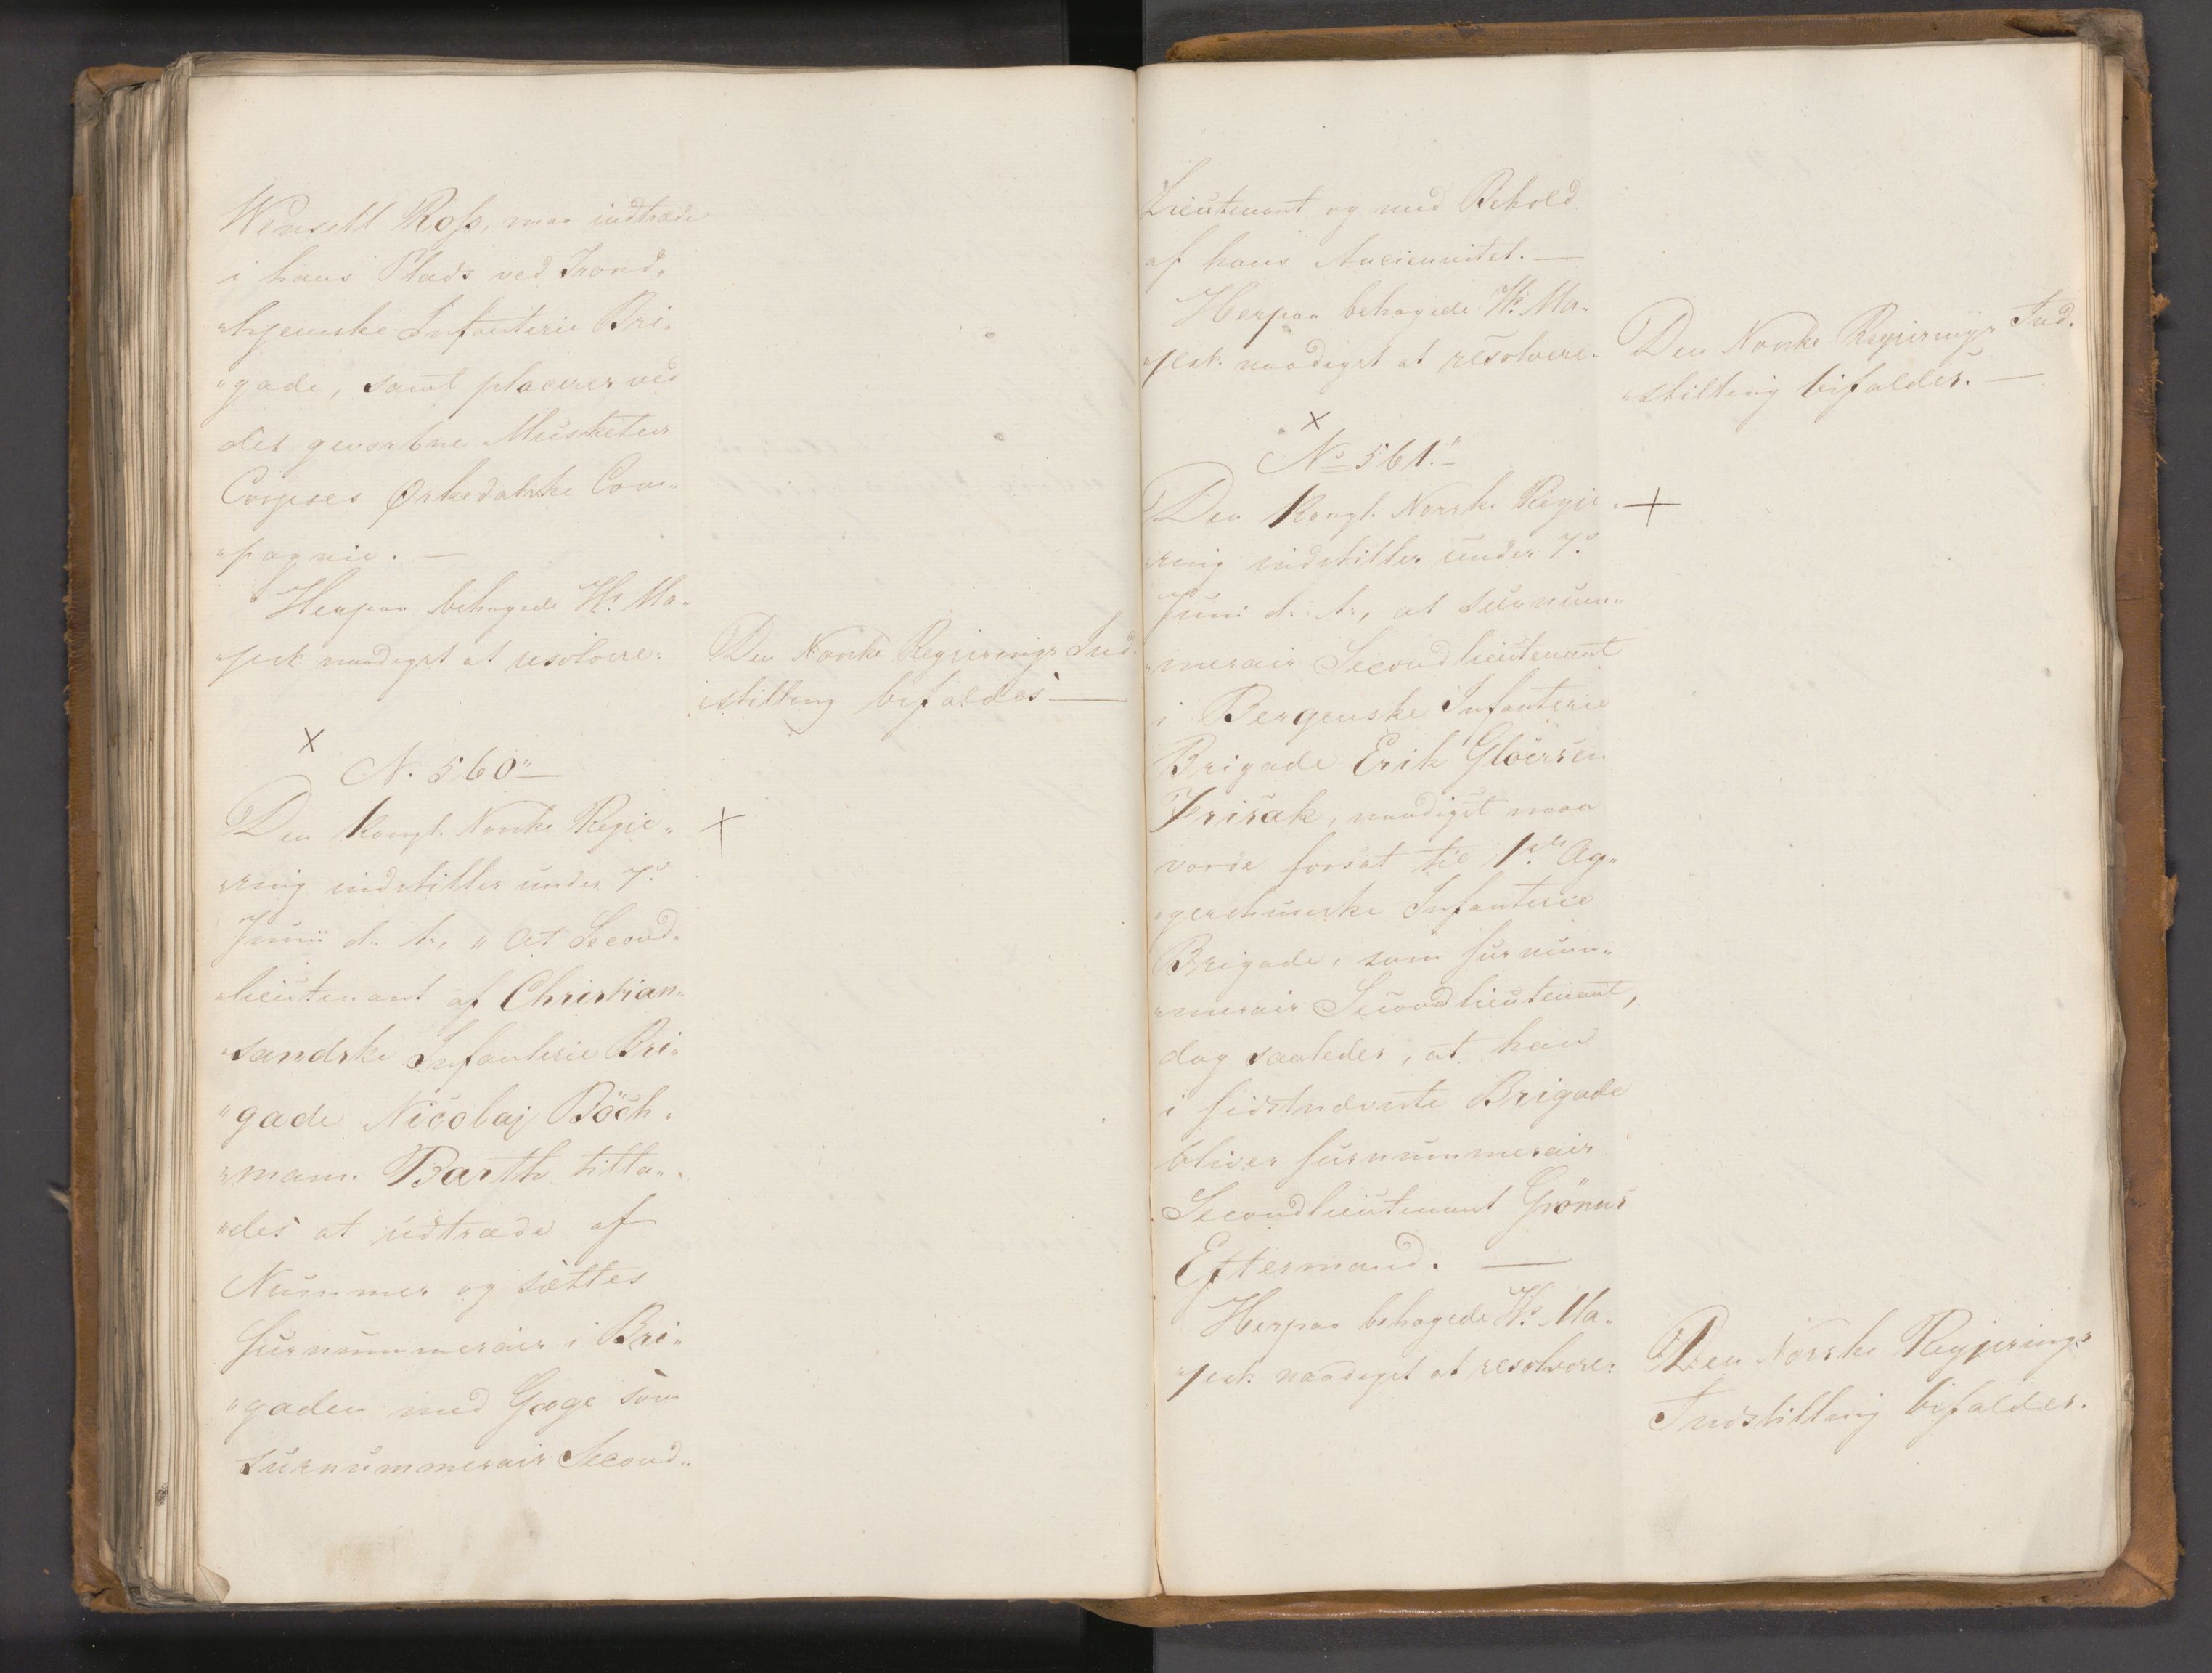 Wensell Ross, maa indtræde
i hans Plads ved Trond„
„hjemske Infanterie Bri„
„gade, samt placerer ved
det gevorbne Musketeer
Corpses Ørkedalske Com„
„pagnie. —
Herpaa behagede Hs. Ma„
„jest. naadigst at resolvere:
Den Norske Regjerings Ind„
„stilling bifaldes —
N. 560" —
Den Kongl. Norske Regie„
„ring indstiller under 7de
Junii d. A., „ at Second„
„lieutenant af Christian„
„sandske Infanterie Bri„
„gade Nicolaj Böch„
„mann Barth tilla„
„des at udtræde af
Nummer og sættes
surnummerair i Bri„
„gaden med Gage som
surnummerair Second„
Lieutenant og med Behold
af hans Anciennitet. —
Herpaa behagede Hs. Ma„
„jest. naadigst at resolvere:
Den Norske Regjerings Ind„
„stilling bifaldes. —
No 561." —
Den Kongl. Norske Regie„
„ring indstiller under 7de
Junii d. A., at surnum„
„merair Secondlieutenant
i Bergenske Infanterie
Brigade Erik Glöersen
Frisak, naadigst maa
vorde forsat til 1ste Ag„
„gershuuske Infanterie
Brigade, som surnum„
„merair Secondlieutenant,
dog saaledes, at han
i sidstnævnte Brigade
bliver surnummerair
Secondlieutenant Grönns
Eftermand. —
Herpaa behagede Hs. Ma„
„jest. naadigst at resolvere:
Den Norske Regjerings
Indstilling bifaldes.